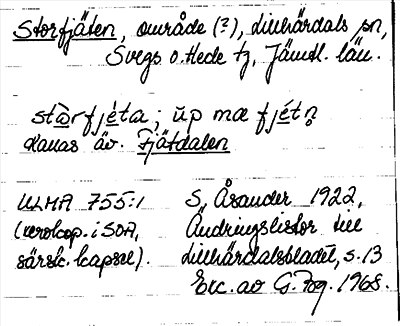 Storfjäten, område (?), Linhärdals sn,
Svegs o. Hede tg, Jämtl. län.
stòrfjéta; ŭp mæ fjétn
Kallas äv. Fjätdalen
ULMA 755:1
(xerokop. i SOA,
särsk. kapsel).
S. Åsander 1922,
Ändringslistor till
Linhärdalsbladet, s. 13
Exc. av G. Fog. 1968.